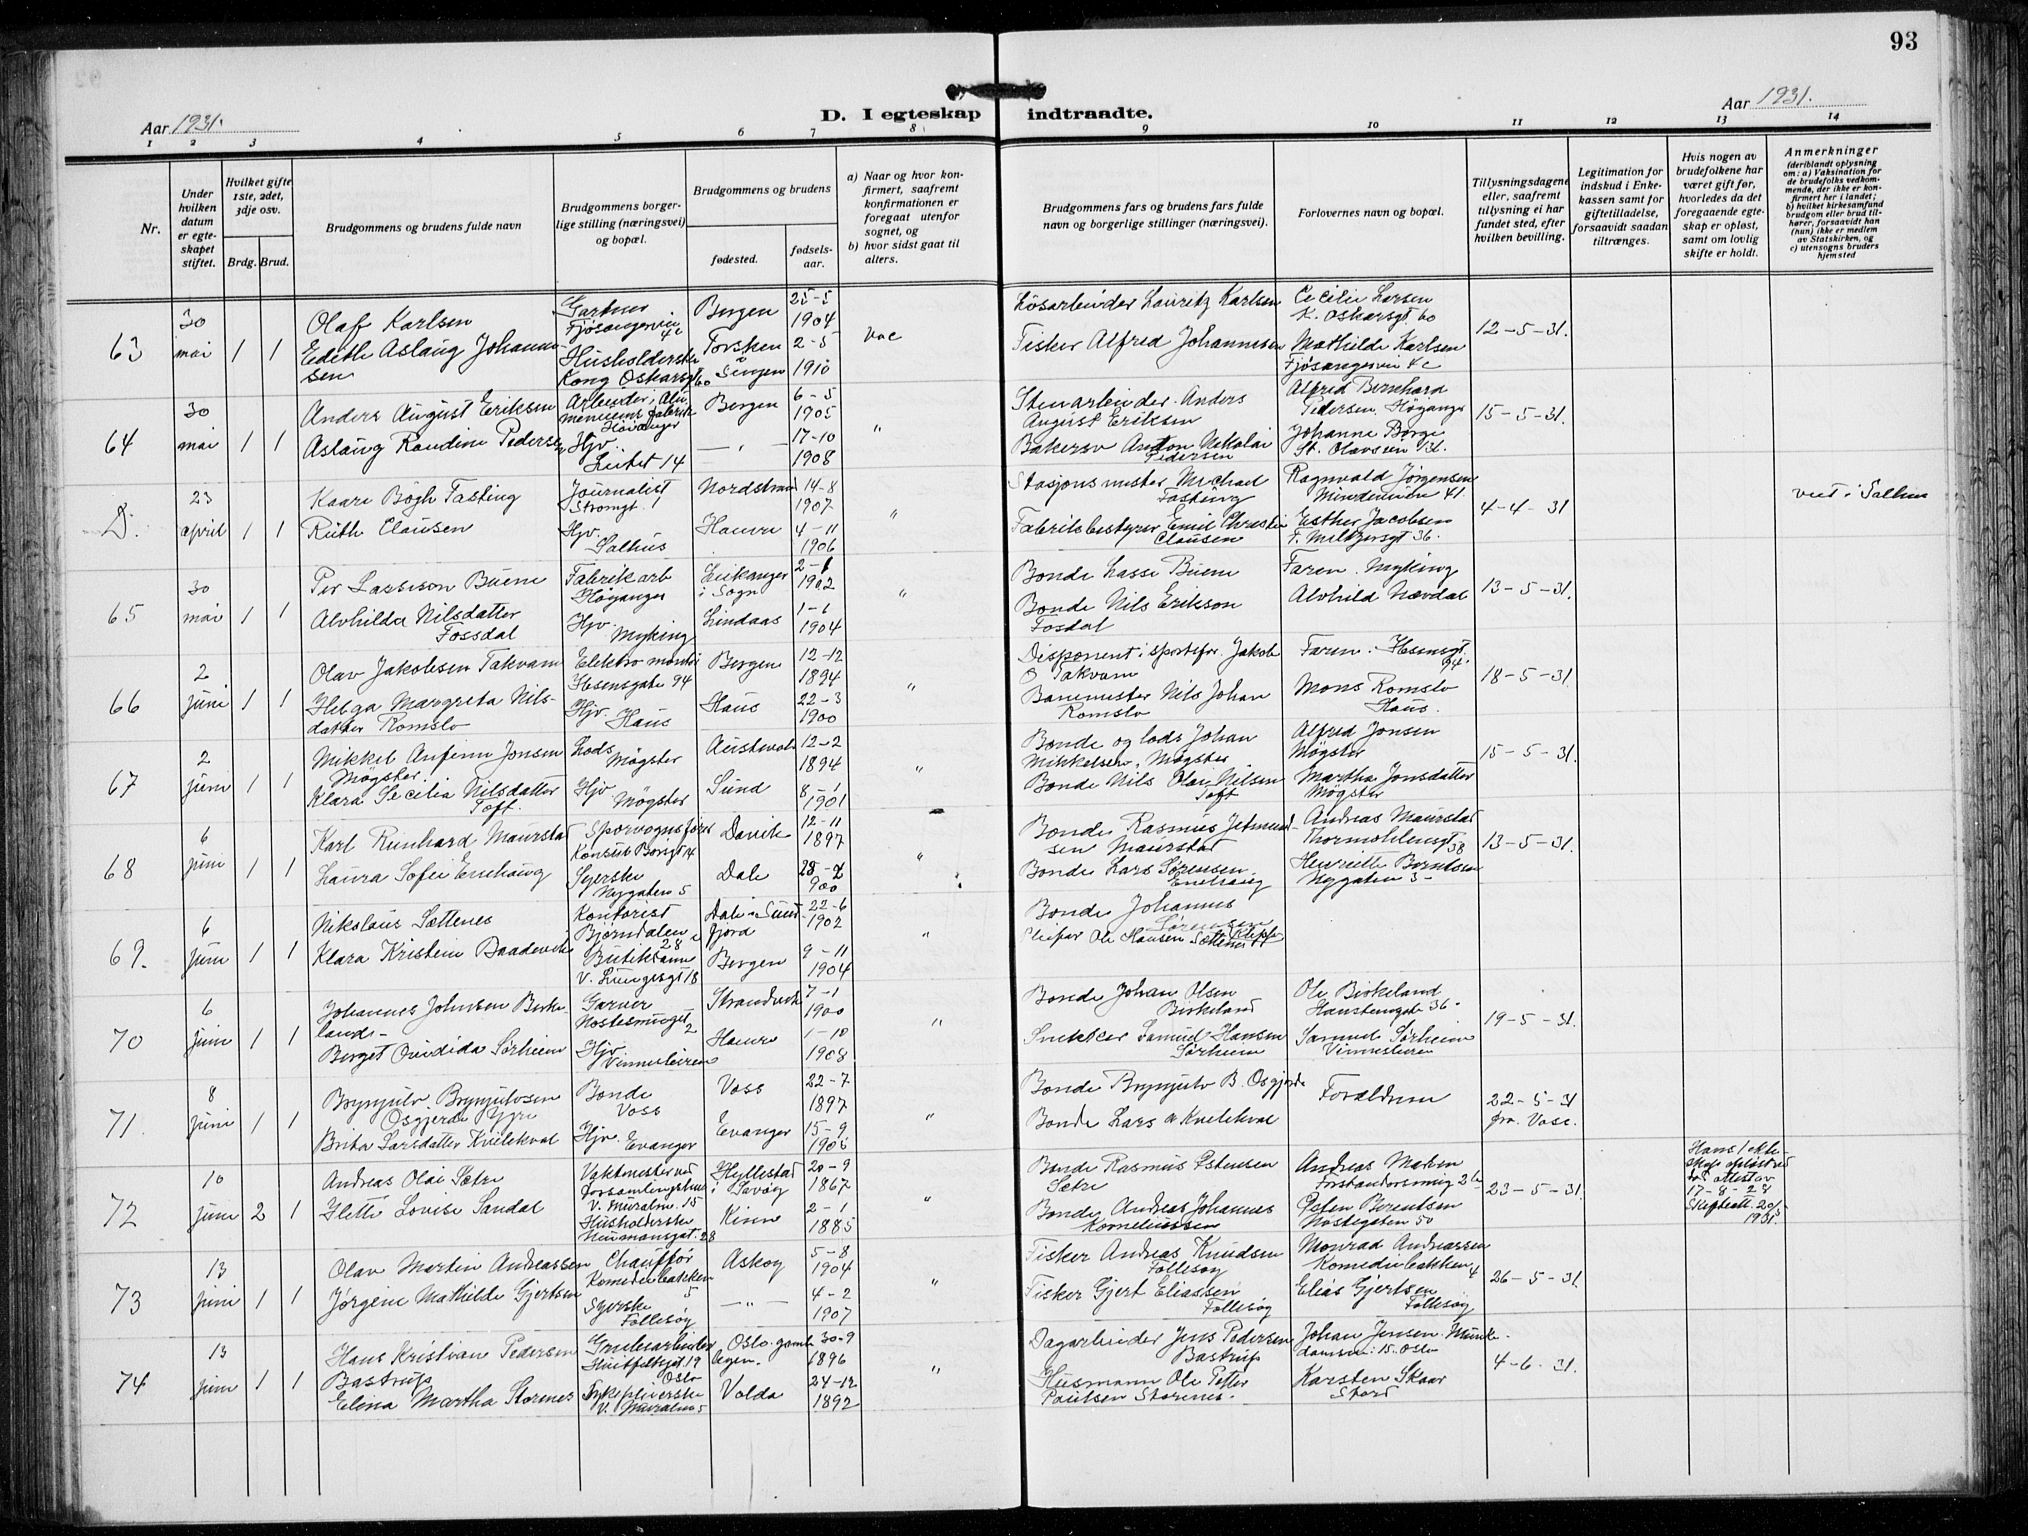 93
Aar 1931.
D. I egteskap indtraadte.
Aar 1931.
1 2 3 4 5 6 7 8 9 10 11 12 13 14
Nr.
Under hvilken datum er egteskapet stiftet.
Hvilket gifte 1ste, 2det, 3dje osv.
Brdg. Brud.
Brudgommens og brudens fulde navn
Brudgommens borgerlige stilling (næringsvei) og bopæl.
Brudgommens og brudens
fødested.
fødselsaar.
a) Naar og hvor konfirmert, saafremt konfirmationen er foregaat utenfor sognet, og
b) hvor sidst gaat til alters.
Brudgommens fars og brudens fars fulde navn og borgerlige stillinger (næringsvei).
Forlovernes navn og bopæl.
Tillysningsdagene eller, saafremt tillysning ei har fundet sted, efter hvilken bevilling.
Legitimation for indskud i Enkekassen samt for giftetilladelse, forsaavidt saadan tiltrænges.
Hvis nogen av brudefolkene har været gift før, hvorledes da det foregaaende egteskap er opløst, samt om lovlig skifte er holdt.
Anmerkninger
(deriblandt oplysning om: a) Vaksination for de brudefolks vedkommende, der ikke er konfirmert her i landet;
b) hvilket kirkesamfund brudgom eller brud tilhører, forsaavidt han (hun) ikke er medlem av Statskirken, og
c) utensogns bruders hjemsted
63 30 mai 1 1
Olaf Karlsen
Edith Aslaug Johannesen
Gartner
Fjøsangerveien 4c
Husholderske
Kong Oskarsgt 60
Bergen
Torsken i Senjen
25-5 1904
2-5 1910
vac
Løsarbeider Lauritz Karlsen
Fisker Alfred Johannesen
Cecilie Larsen
K. Oskarsgt. 60
Mathilde Karlsen
Fjøsangerveien 4c
12-5-31.
64 30 mai 1 1
Anders August Eriksen
Aslaug Randine Pedersen
Hjv.
Bergen
—"—
6-5 1905
17-10 1908
"
Stenarbeider Anders
August Eriksen
Bakersv Anton Nikolai
Pedersen
Alfred Bernhard
Pedersen, Høyanger
Johanne Børge
St. Olavsvei 31.
15-5-31.
D. 23 april 1 1
Kaare Bøgh Fasting
Ruth Clausen
Journalist
Stromgt. 1
Hjv.
Salhus
Nordstrand
Hamre
14-8 1907
4-11 1906
"
Stasjonsmester Michael
Fasting
Fabrikbestyrer Emil Christian
Clausen
Ragnvald Jørgensen
Mindeveien 41
Esther Jacobsen
F. Meltzersgt 36.
4-4-31
viet i Salhus
65 30 mai 1 1
Per Lasseson Buene
Alvhilda Nilsdatter
Fossdal
Fabrikarb
Høyanger
Hjv.
Myking
i Sogn
Lindaas
2-1 1902
1-1 1904
"
Bonde Lasse Buene
Bonde Nils Erikson
Fosdal
Faren. Myking
Alvhild Nævdal
13-5-31.
66 2 juni 1 1
Olav Jakobsen Takvam
Helga Margreta Nilsdatter Romslo
Elektro montør
Ibsensgate 94
Hjv. Haus
Bergen
Haus
12-12 1894
22-3 1900
"
Disponent i sportsfor. Jakob
O Takvam
Banemester Nils Johan
Romslo
Faren. Ibsensgt. 94.
Mons Romslo
Haus.
18-5-31.
67 2 juni 1 1
Mikkel Anfinn Jonsen
Møgster.
Klara Secilia Nilsdatter
Toft.
Lods
Møgster
Hjv
Møgster
Austevoll
Sund
12-2 1894
8-1 1901
"
Bonde og lods Johan
Mikkelsen, Møgster
Bonde Nils Olai Nilsen
Toft
Alfred Jonsen
Møgster
Martha Jonsdatter
Møgster
15-5-31.
68 6 juni 1 1
Karl Reinhard Maurstad
Laura Sofie Enehaug
Sporvognsfører
Konsul Børsgt 14
Syerske
Nygaten 5
Davik
Dale
12-11 1897
28-2 900
"
Bonde Rasmus Jetmundsen Maurstad
Bonde Lars Sørensen
Enehaug
Andreas Maurstad
Thormøhlensgt 38
Henriette Berntsen
Nygaten 5
13-5-31.
69. 6 juni 1 1
Nikolaus Sættenes
Klara Kristine Baadsvik
Kontorist
Bjørndalen 28
Butikkdame
V. Lungesgt 18
Dale i Sunnfjord
Bergen
22-6 1902
9-11 1904
"
Bonde Johannes
Sørensen
Ole Hansen Sættenes
70 6 juni 1 1
Johannes Johnsen Birkeland
Berget Ovidida Sørheim
Garver
Nøstesmuget 2
Hjv
Vinnesleiren
Strandvik
Hamre
7-1 1900
1-10 1908
"
Bonde Johan Olsen
Birkeland
Snekker Samuel Hansen
Sørheim
Ole Birkeland
Hansteensgate 36.
Samuel Sørheim
Vinnesleiren
19-5-31.
71. 8 juni 1 1
Brynjulv Brynjulvsen
Osgjerde Ygre
Brita Larsdatter Kvilekval
Bonde
Voss
Hjv.
Evanger
Voss
Evanger
22-7 1897
15-9 1906
"
Bonde Brynjulv B. Osgjerde
Bonde Lars A Kvilekval
Forældrene
22-5-31
fra Voss.
72 10 juni 2 1
Andreas Olai Sætre
Jlette Lovise Sandal
Vaktmester ved
forsamlingshus
V. Muralm. 15
Husholderske
Neumansgt. 28
Hyllestad
Kinn
20-9 1867
2-1 1885
"
Bonde Rasmus Østensen
Sætre
Bonde Andreas Johannes
Korneliussen
Andreas Molven
Forstandersmug 2b
Peter Berentsen
Nøstegaten 50
23-5-31.
Hans 1 ekteskap opløst ved
død attest av
17-8-28
Skifteatt. 20/5
1931.
73 13 juni 1 1
Olav Martin Andreassen
Jørgine Mathilde Gjertsen
Chauffør
Komediebakken 5
Syerske
Follesøy
Askøy
—"—
5-8 1904
4-2 1907
"
Fisker Andreas Knudsen
Follesøy
Fisker Gjert Eliassen
Follesøy
Monrad Andreassen
Komediebakken 4
Elias Gjertsen
Follesøy
26-5-31.
74 13 juni 1 1
Hans Kristian Pedersen
Bastrup
Elina Martha Storenes
Grubearbeider
Huitfeldtsgt 19
Oslo
Sykepleierske
V. Muralm 5
Oslo. gamle
byen.
Volda
30-9 1896
24-12 1892
"
Dagarbeider Jens Pedersen
Bastrup
Husmann Ole Petter
Paulsen Storenes.
Johan Jensen. Munkedamsv. 15. Oslo
Karsten Skaar
Stord
4-6-31.